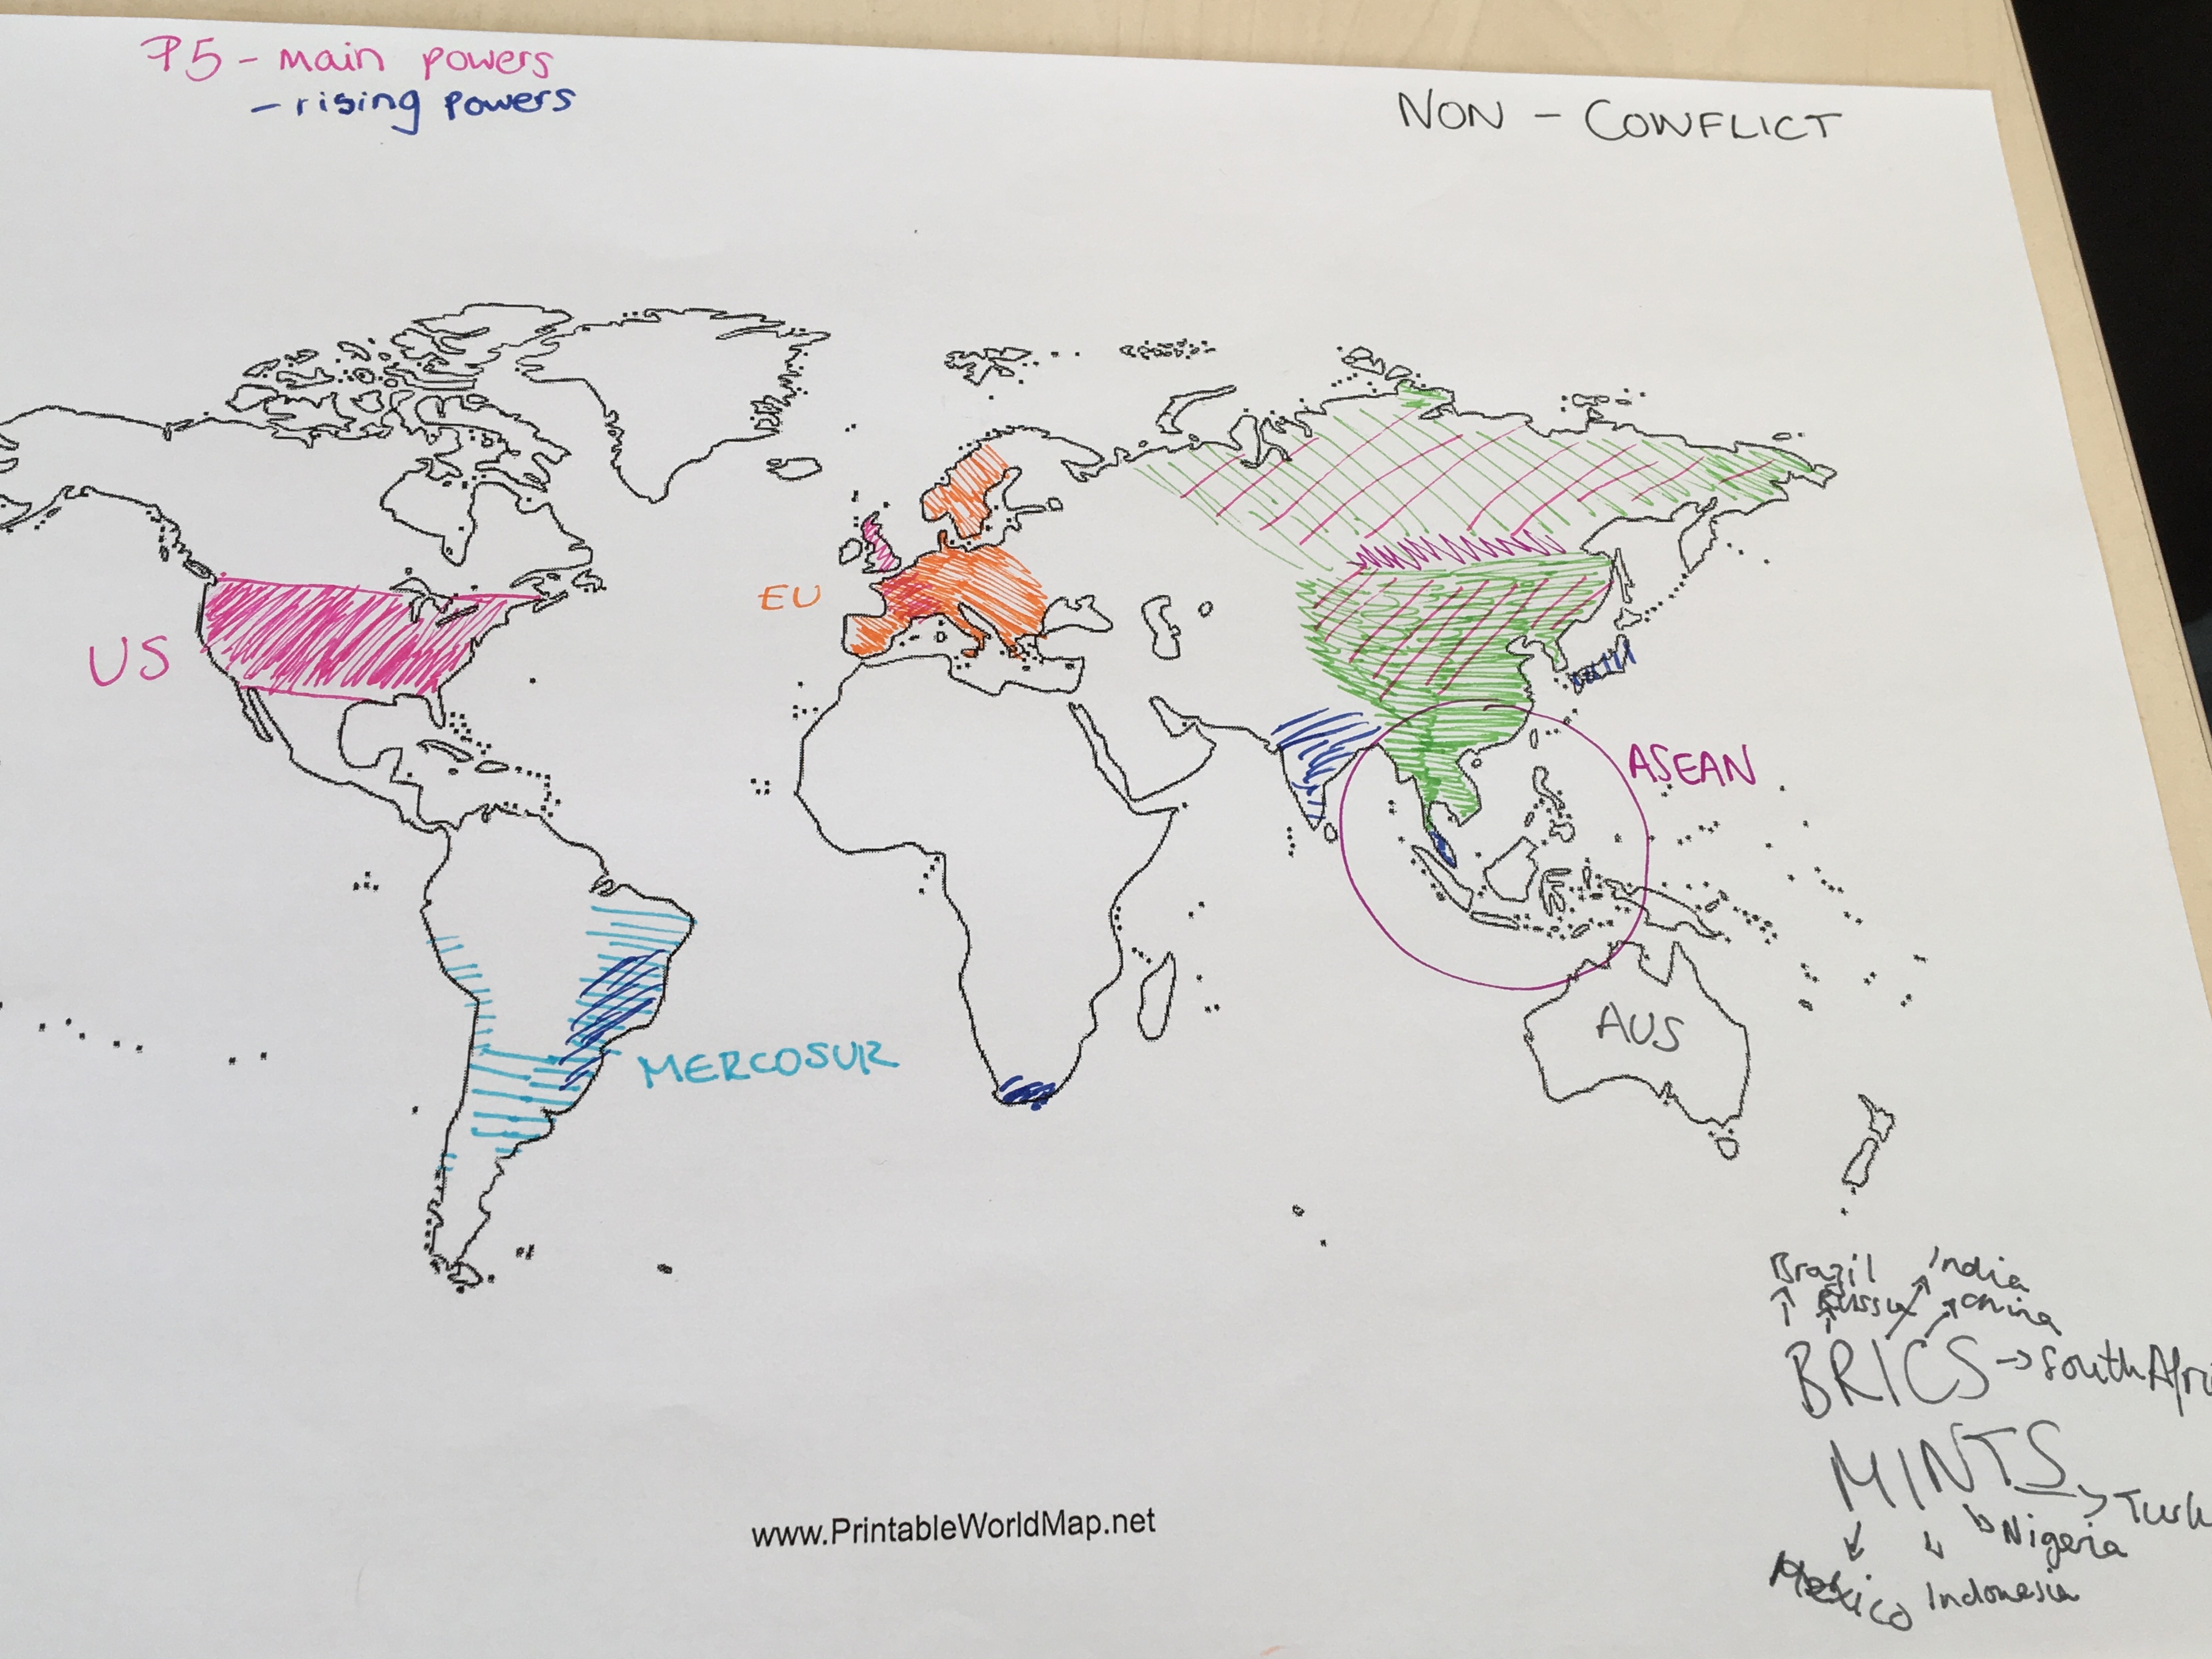 P5 - main powers
- rising powers
NON - CONFLICT
US
EU
ASEAN
MERCOSUR
AUS
Brazil
India
Russia
China
BRICS → South Afri
MINTS
Turk
Nigeria
Mexico
Indonesia
www.PrintableWorldMap.net